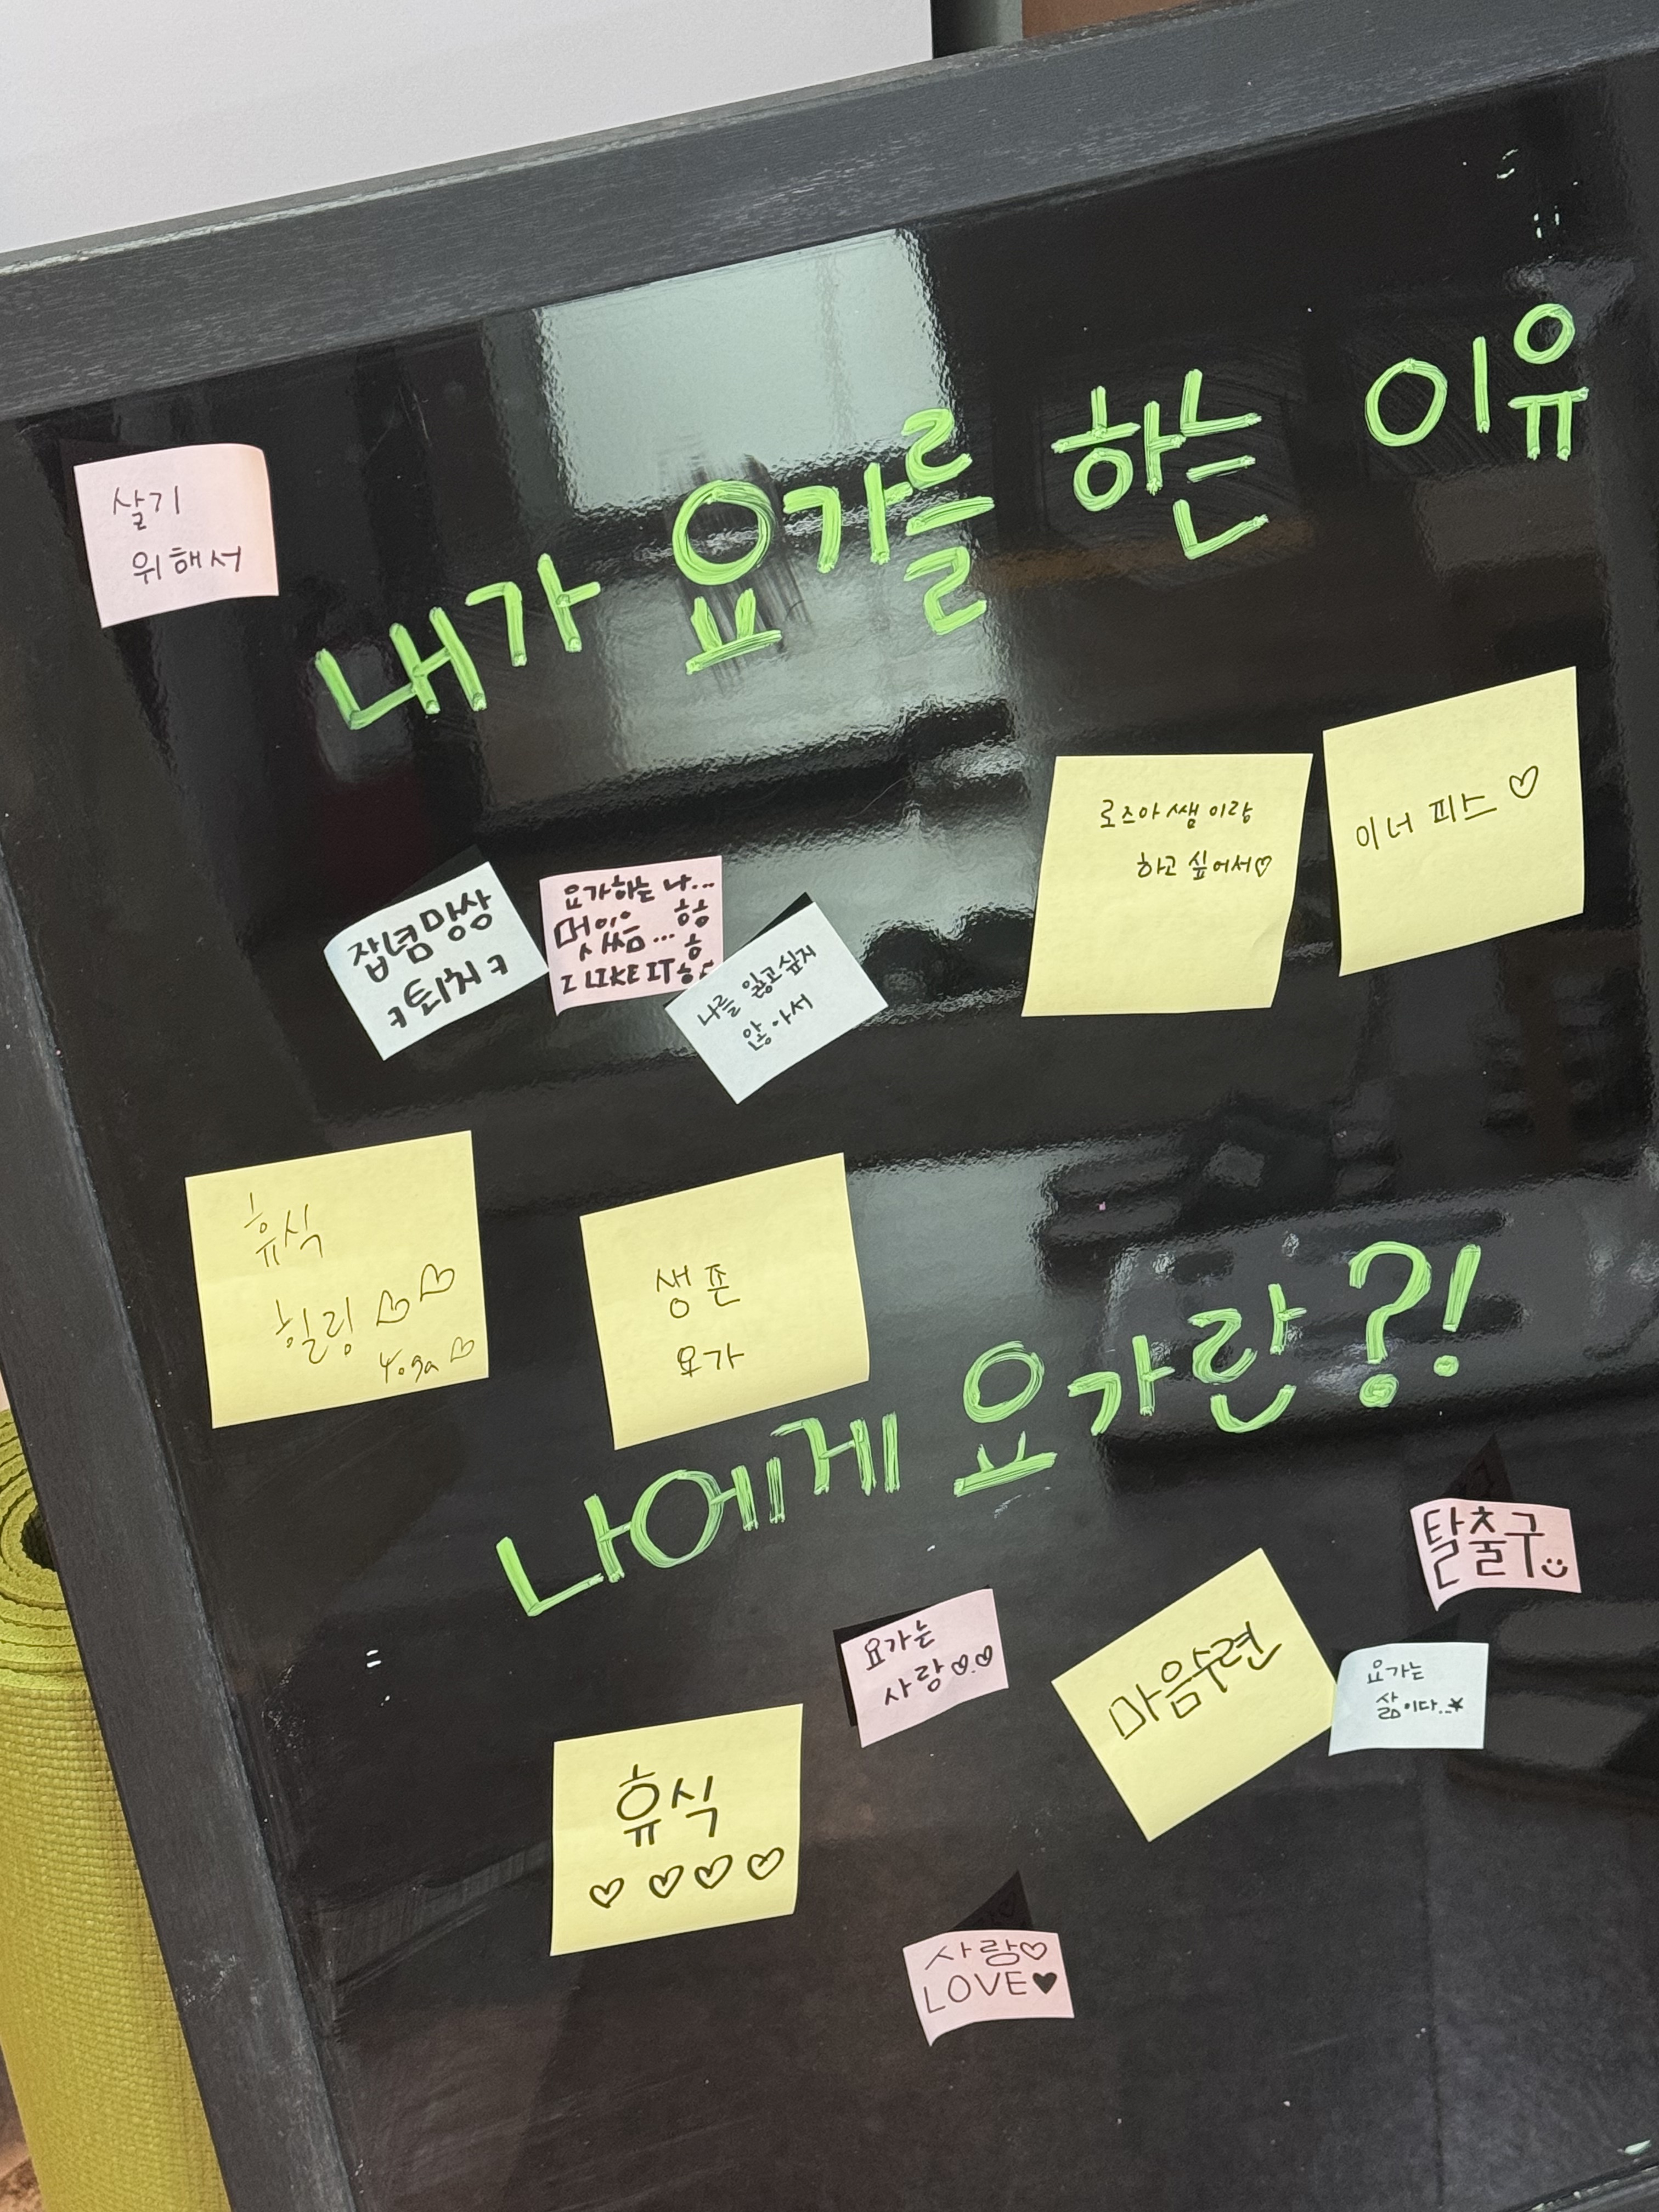 내가 요가를 하는 이유
살기
위해서
잡념망상
ㅋ퇴치ㅋ
요가하는 나...
멋있음... 흐흐
I LIKE IT ㅎㅎ
나를 잃고싶지
않아서
로즈아쌤이랑
하고 싶어서♡
이너 피스 ♡
휴식
힐링 ♡♡
Yoga ♡
생존
요가
나에게 요가란?!
탈출구
요가는
사랑♡.♡
마음수련
요가는
삶이다..★
휴식
♡ ♡ ♡ ♡
사랑♡
LOVE♥